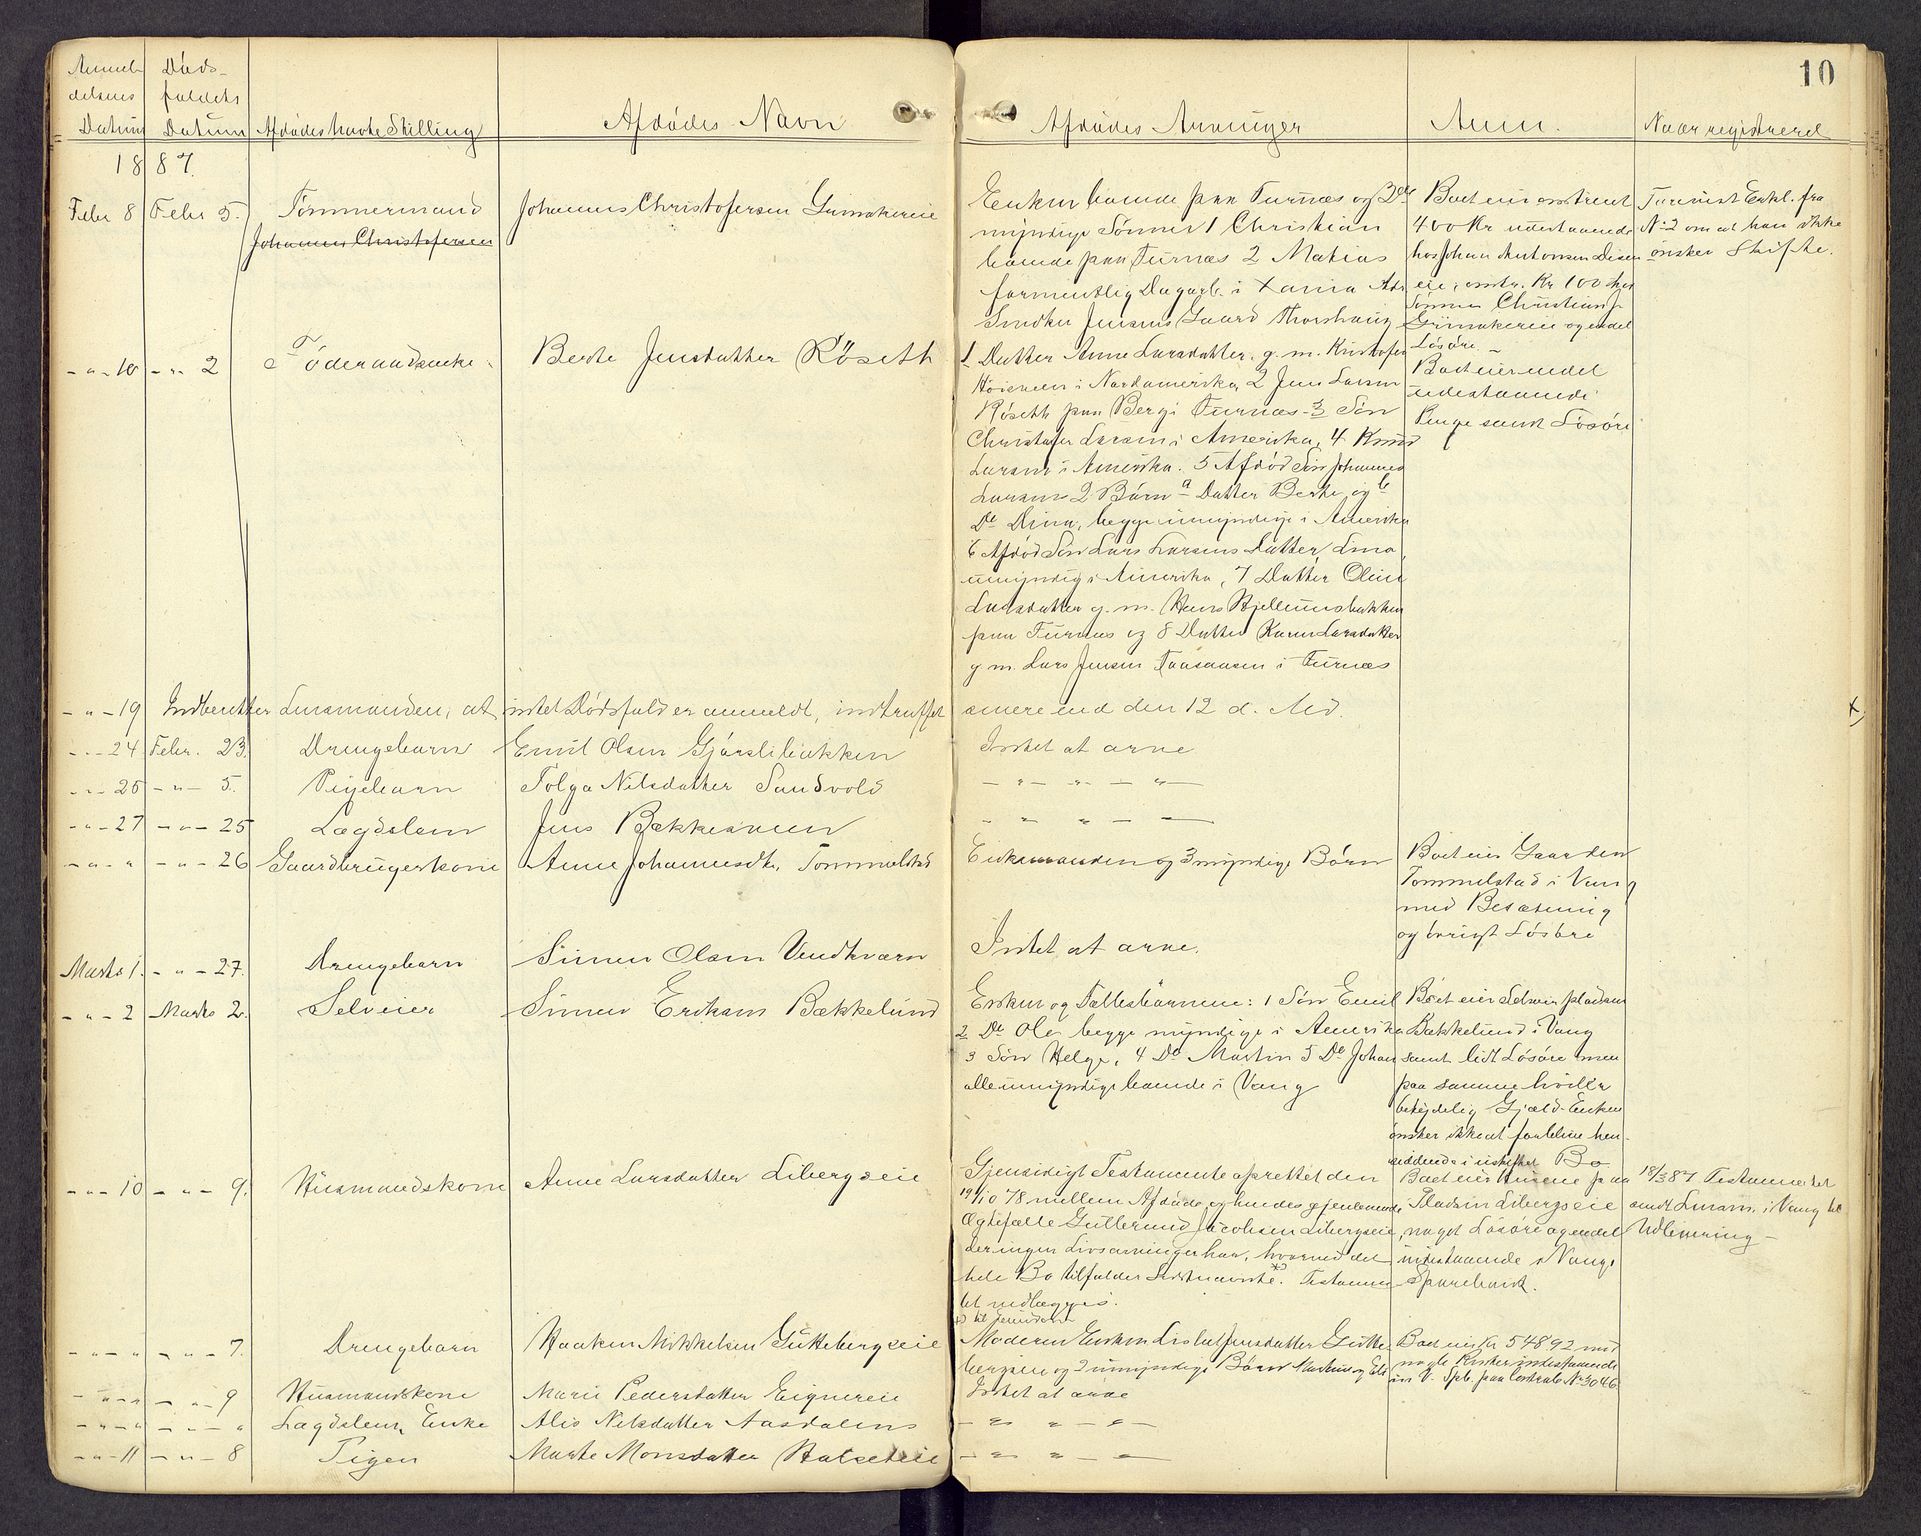 10
Anmel- Døds-
delsens faldets
Datum Datum Afdødes havte Stilling Afdødes Navn Afdødes Arvinger Anm. Naar registreret
1887.
Febr 8 Febr 5. Tømmermand Johannes Christofersen Grimakereie
Johannes Christofersen
Enken boende paa Furnæs og 3de
myndige Sønner 1 Christian
boende paa Furnæs 2 Matias
formentlig Dagarb. i Xania Adr
Snedker Jensens Gaard Thorshaug
Boet eier omtrent
400 Kr udestaaende
hos Johan Antonsen Disen
eie, omtr. Kr 100 hos
Sønnen Christian J.
Grimakereie og endel
Løsøre. –
Farevist Erkl. fra
No 2 om at han ikke
ønsker Skifte.
- " - 10 - " - 2 Føderaadsenke. Berte Jensdatter Røseth
1 Datter Anne Larsdatter. g. m. Kristofer
Høisveen i Nordamerika, 2 Jens Larsen
Røseth paa Berg i Furnæs 3 Søn
Christofer Larsen i Amerika, 4 Knud
Larsen i Amerika. 5 Afdød Søn Johannes
Larsens 2 Børn a Datter Berte, og b
De Dina, begge umyndige i Amerika
6 Afdød Søn Lars Larsens Datter Lina
umyndig i Amerika, 7 Datter Oline
Larsdatter g. m. Hans Hjellumsbakken
paa Furnæs og 8 Datter Karen Larsdatter
g m. Lars Jensen Faasaasen i Furnæs
Boet eier endel
udestaaende
Penge samt Løsøre
- " - 19 Indberetter Lensmanden, at intet Dødsfald er anmeldt, indtruffet senere end den 12 d. Md.
x)
- " - 24 Febr. 23. Drengebarn Emil Olsen Gjørslibakken Intet at arve
- " - 25 - " - 5. Pigebarn Tolga Nilsdatter Sandvold - " - " - " -
- " - 27 - " - 25 Lægdslem Jens Bækkesveen " " " -
- " - " - " - 26 Gaardbrugerkone Anne Johannesdt. Tommelstad Enkemanden og 3 myndige Børn
Boet eier Gaarden
Tommelstad i Vang
med Besætning
og øvrigt Løsøre
Marts 1. - " - 27. Drengebarn Simen Olsen Vendkværn Intet at arve.
- " - 2 Marts 2. Selveier Simen Eriksen Bækkelund
Enken og Fællesbørnene: 1 Søn Emil
2 De Ole, begge myndige i Amerika
3 Søn Helge, 4 De Martin 5 De Johan
alle umyndige boende i Vang
Boet eier Selveierpladsen
Bækkelund i Vang
samt lidt Løsøre men
paa samme hviler
betydelig Gjæld. Enken
ønsker ikke at forblive hen-
siddende i uskiftet Bo
- " - 10 - " - 9. Husmandskone Anne Larsdatter Libergseie
Gjensidigt Testamente oprettet den
19/10 78 mellem Afdøde og hendes gjenlevende
Ægtefælle Gulbrand Jacobsen Libergseie
der ingen Livsarvinger har, hvorved det
hele Bo tilfalder Sidstnævnte x). Testamen-
tet vedlægges.
x) til Eiendom
Boet eier Husene paa
Pladsen Libergseie
noget Løsøre og endel
indestaaende i Vangs
Sparebank.
18/3 87 Testamentet
sendt Lensm. i Vang til
Udlevering –
- " - " - " - 7. Drengebarn Haaken Mikkelsen Gutterbergseie
Moderen Enken Lisbet Jensdatter Gutter-
bergseie og 2 umyndige Børn
Boet eier Kr 548 92 med
nogle Renter indestaaende
in V. Spb. paa Contrab. No 3046.
- " - " - " - 9 Husmandskone Marie Pedersdatter Eignereie Intet at arve
- " - " - " - " Lægdslem, Enke Alis Nilsdatter Aasdalens - " - " - " -
- " - 11 - " - 8 Pigen Marte Monsdatter Halseteie - " - " - " -